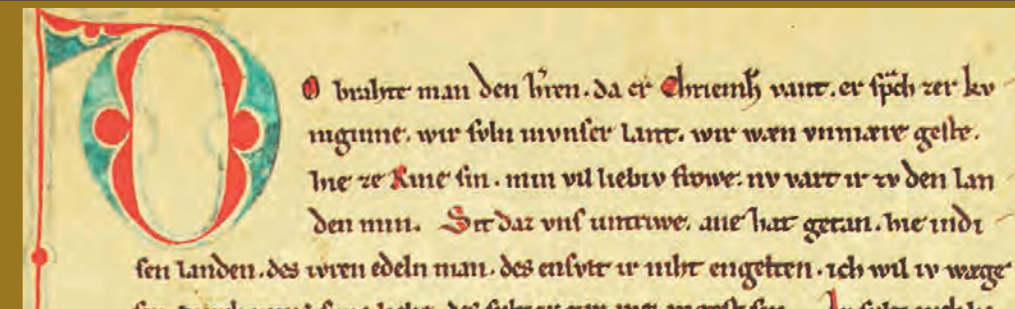 DO brahte man den h'ren. da er Chriemh vant. er sp̄ch zer kv
niginne. wir svln invnser lant. wir wæn vnmære geste.
hie ze Rine sin. min vil liebiv frowe. nv vart ir zv den lan
den min. Sit daz vns untriwe. ane hat getan. hie indi
sen landen. des iwren edeln man. des ensvlt ir niht engelten. ich wil iv wæge